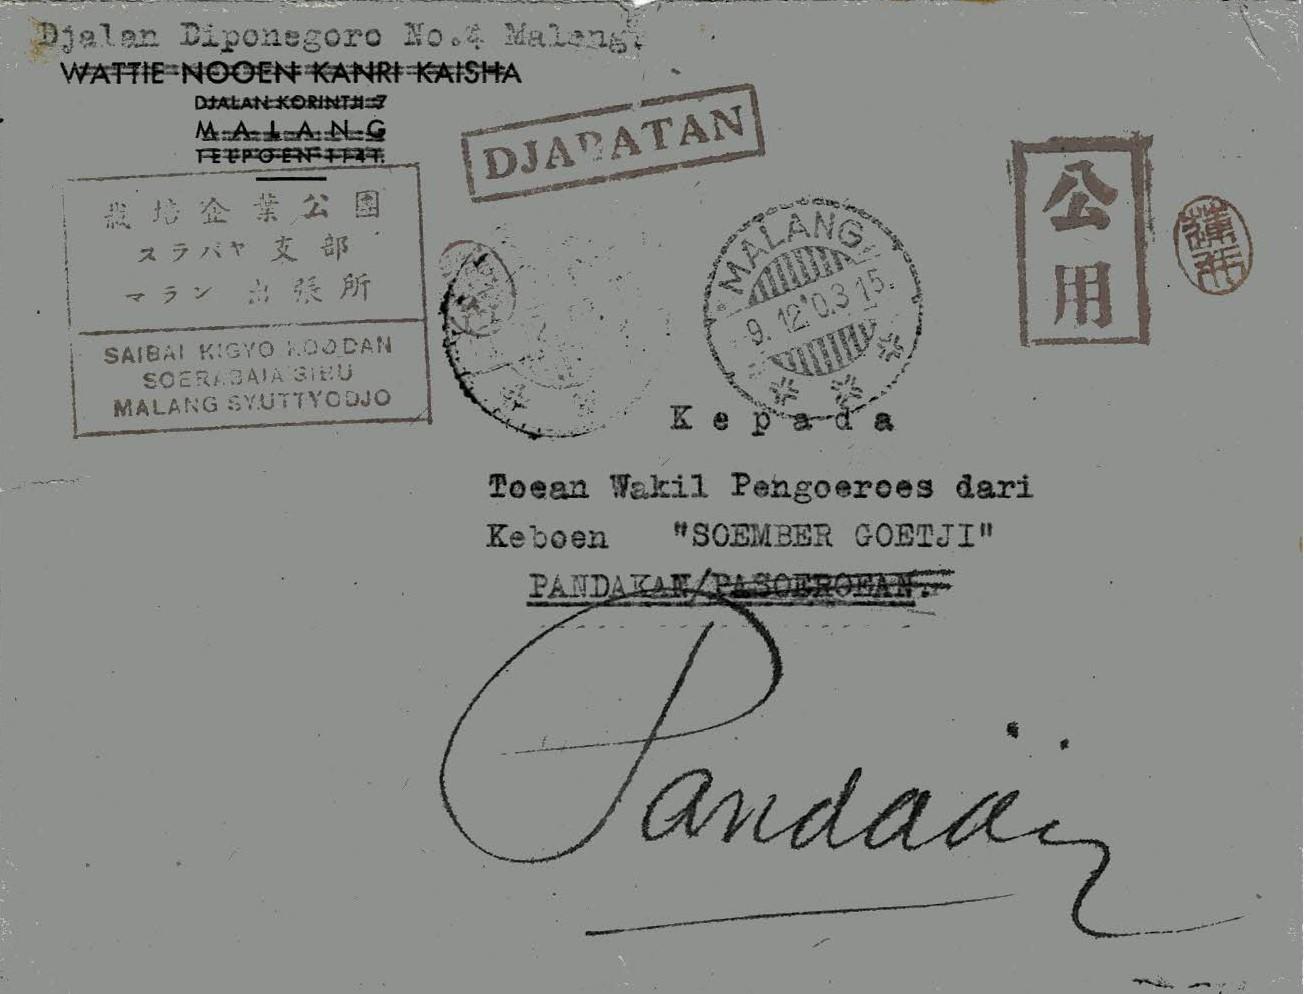 Djalan Diponegoro No.4 Malang.
WATTIE NOOEN KANRI KAISHA
DJALAN KORINTJI 7
MALANG
TELIPOEN 1141.
DJABATAN
栽培企業公團
スラバヤ支部
マラン出張所
SAIBAI KIGYO KOODAN
SOERABAIA SIBU
MALANG SYUTTYODJO
MALANG
9.12.03 15.
公用
Kepada
Toean Wakil Pengoeroes dari
Keboen "SOEMBER GOETJI"
PANDAKAN/PASOEROEAN.
Pandaän